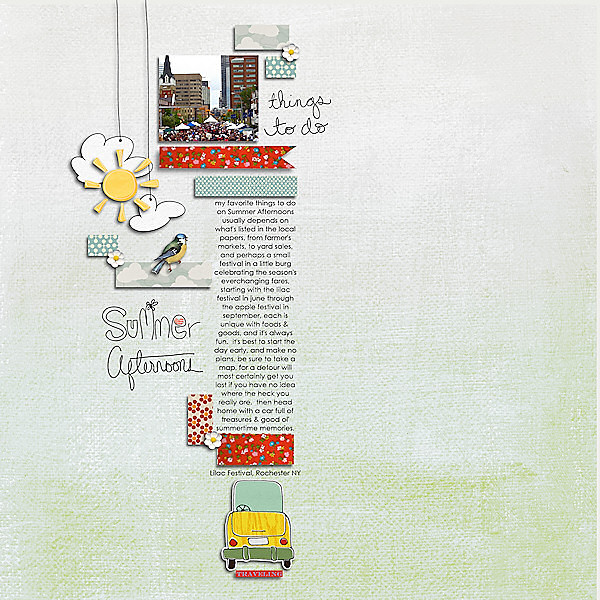 things
to do
my favorite things to do
on Summer Afternoons
usually depends on
what's listed in the local
papers, from farmer's
markets, to yard sales,
and perhaps a small
festival in a little burg
celebrating the season's
everchanging fares,
starting with the lilac
festival in june through
the apple festival in
september, each is
unique with foods &
goods, and it's always
fun. it's best to start the
day early, and make no
plans, be sure to take a
map, for a detour will
most certainly get you
lost if you have no idea
where the heck you
really are. then head
home with a car full of
treasures & good ol'
summertime memories.
Summer
Afternoons
Lilac Festival, Rochester NY
TRAVELING